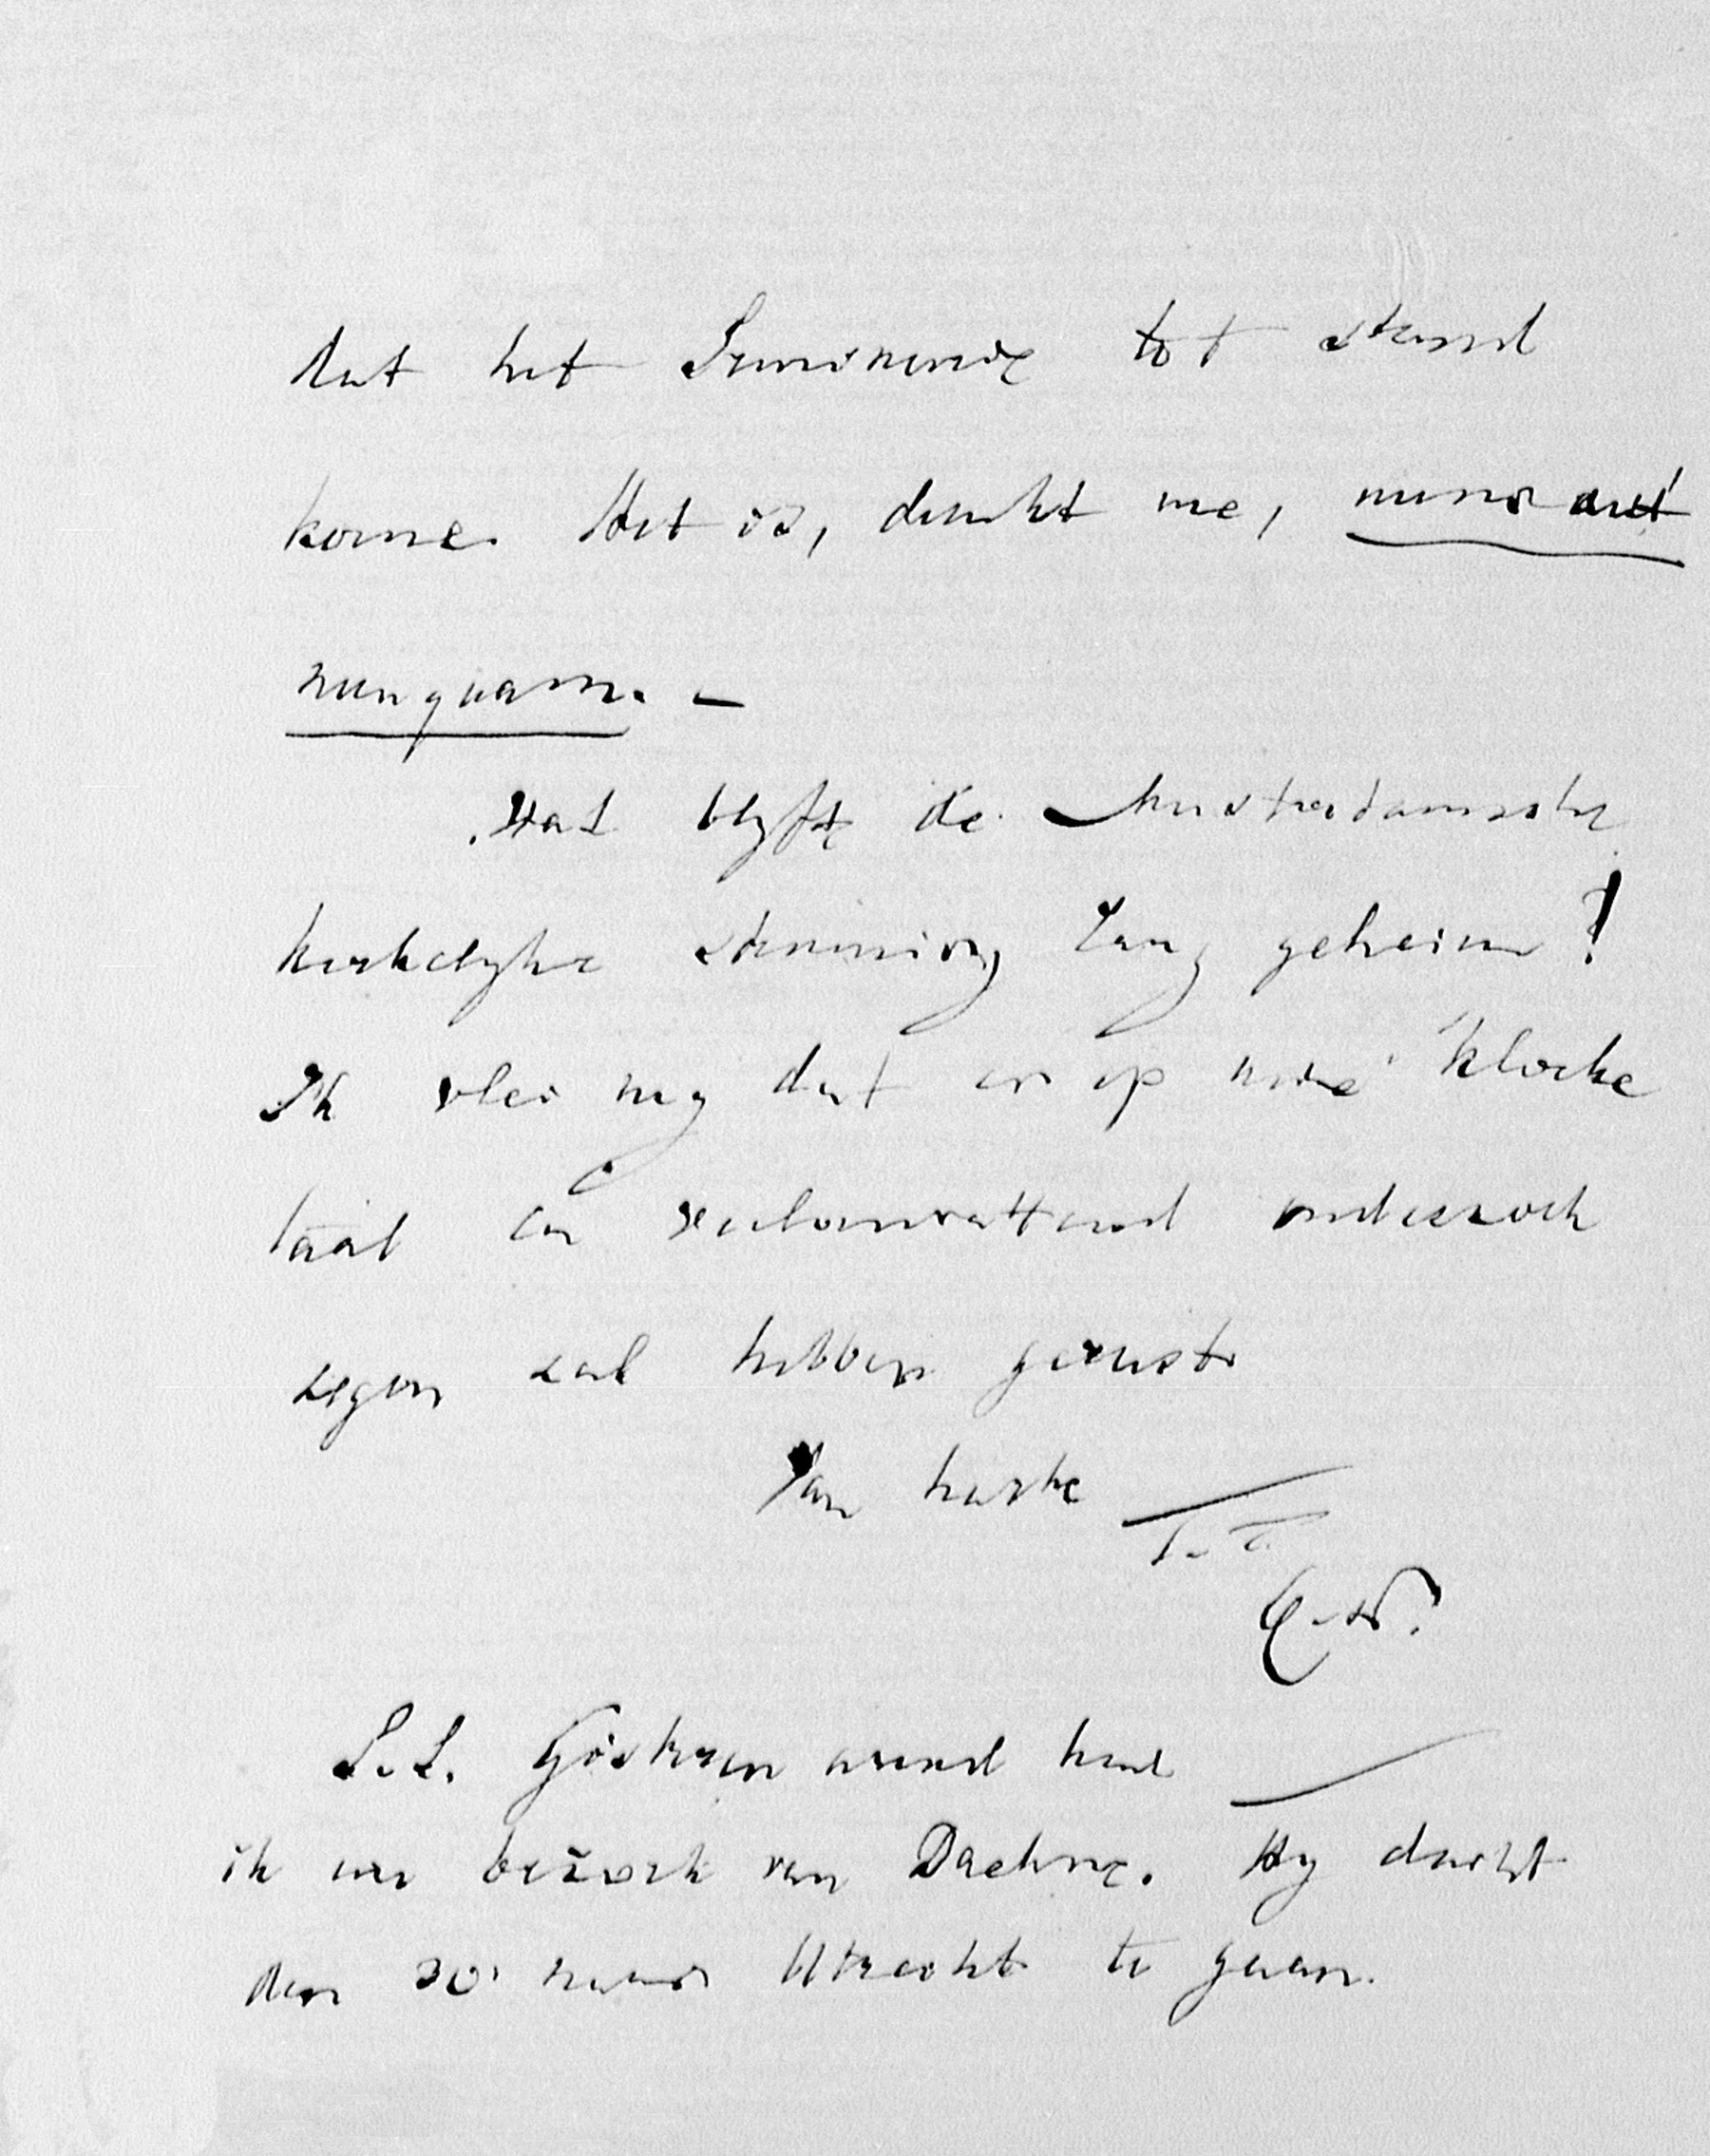 dat het Seminarie tot stand
kome. Het is, dunkt me, nunc aut
nunquam. —
Wat blyft de Amsterdamsche
kerkelyke stemming lang geheim!
Ik vlei my dat er op uwe kloeke
taal en veelomvattend onderzoek
zegen zal hebben gerust.
Van harte
t. t.
S.S. Gisteren avond had
ik een bezoek van Daehne. Hy dacht
den 30 naar Utrecht te gaan.